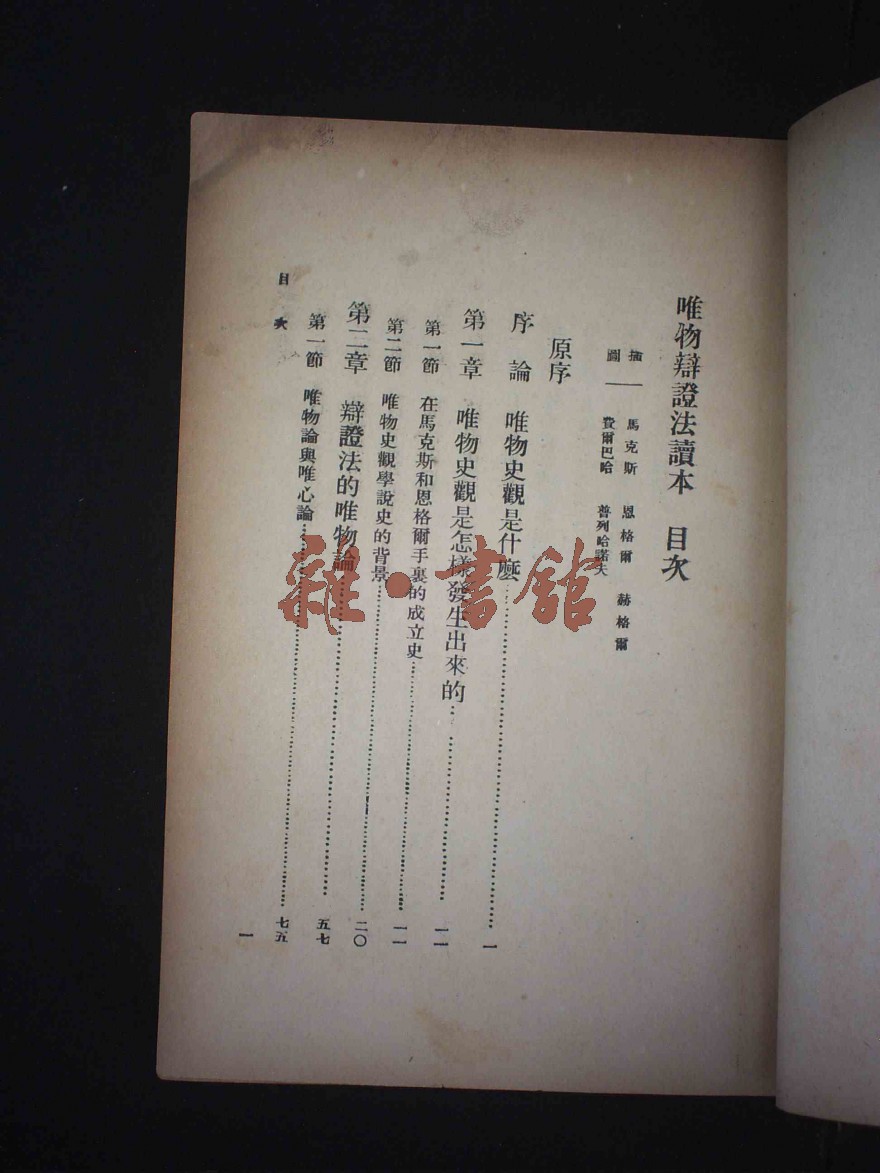 唯物辯證法讀本 目次
插圖——馬克斯 恩格爾 赫格爾
費爾巴哈 普列哈諾夫
原序
序論 唯物史觀是什麼…………一
第一章 唯物史觀是怎樣發生出來的…………一一
第一節 在馬克斯和恩格爾手裏的成立史…………一一
第二節 唯物史觀學說史的背景…………二〇
第二章 辯證法的唯物論…………五七
第一節 唯物論與唯心論…………七五
目次
一
雜·書館